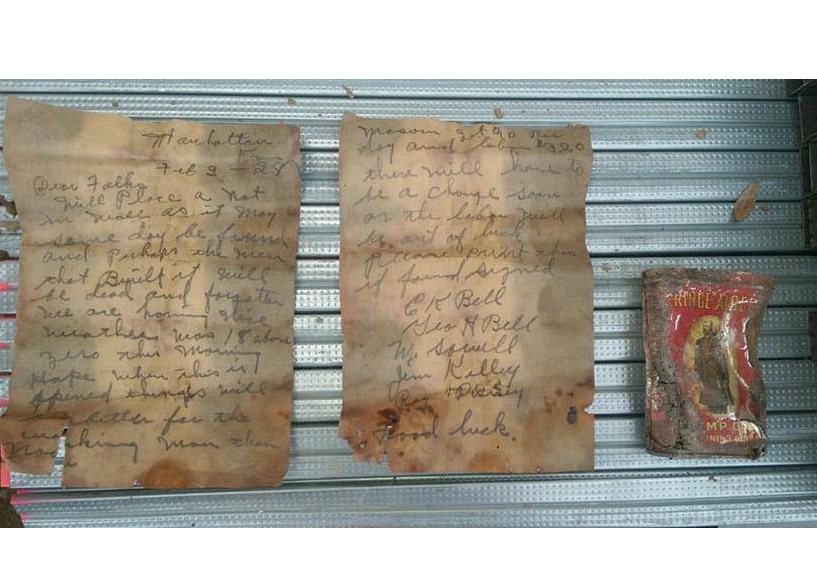 Manhattan
Feb 2 - 28
Dear Folks
Will Place a Not
in wall as it May
some day be found
and perhaps the men
that Built it will
be dead and forgoten
we are haveing nice
weather was 18 above
zero this Morning
Hope when this is
opened things will
be better for the
working man than
now
Mason get 90 Per
day and labor $3.20
there will have to
be a change soon
or the labor will
be out of luck
please print this
if found signed
E K Bell
Geo H Bell
W. Sowell
Jim Kelley
Ray
Good luck.
PRINCE ALBERT